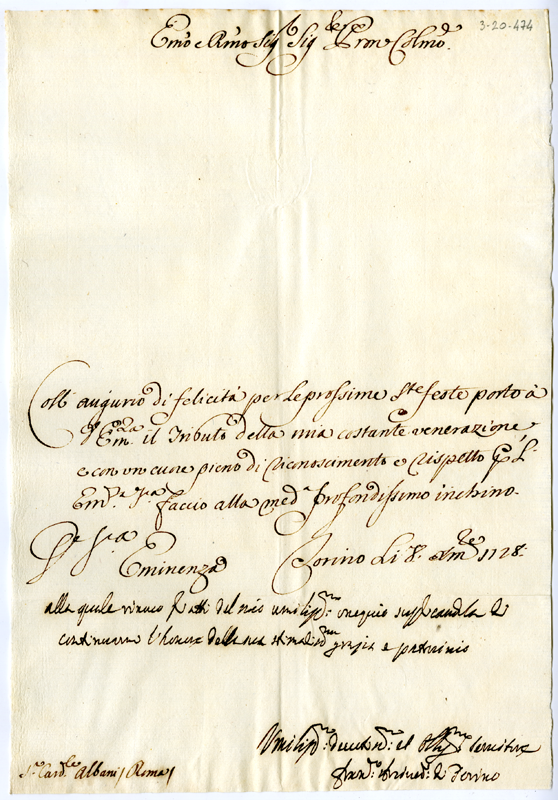 3-20-474
Emo e Rmo Sig Sig Pron Colmo.
Coll augurio di felicità per le prossime Ste feste porto à
Em. il Tributo della mia costante venerazione
e con uno cuore pieno di riconoscimento e rispetto
Em. faccio alla meda profondissimo inchino.
Eminenza Torino li 8. Xmbre 1728.
alla quale gl'atti del mio umilissmo ossequio supplicandola di
continuarmi l'honore della sua stimatissma grazia e patrocinio
Umilissmo: devotissmo: et Obligmo servitore
Sre Cardle Albani / Roma /
Francco Arcivco: di Torino